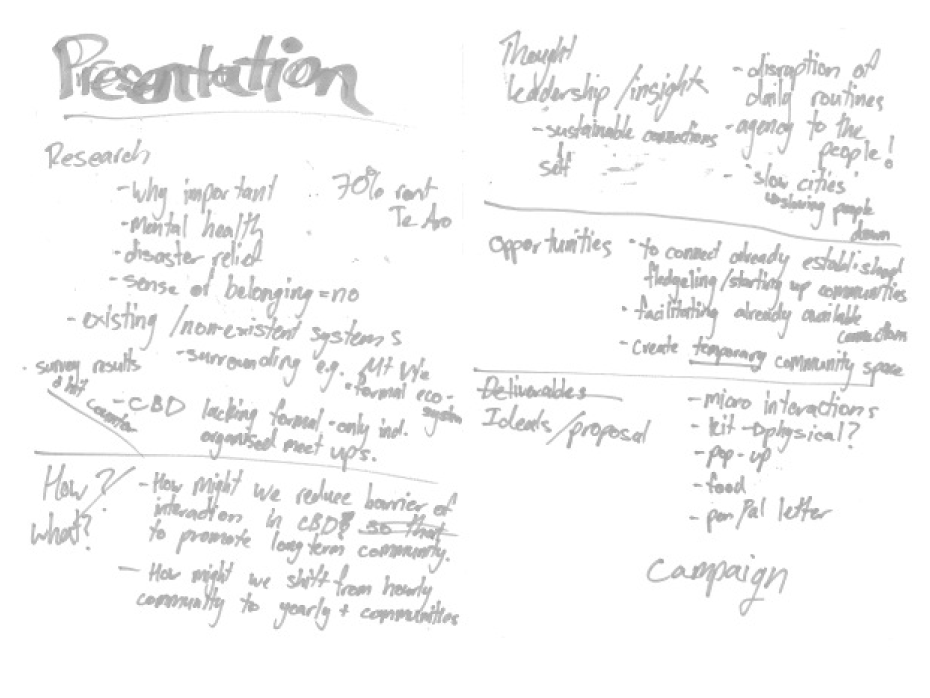 Presentation
Research
- Why important
- Mental health
- disaster relief
- sense of belonging = no
70% rent
Te Aro
- existing / non-existent systems
- surrounding e.g. Mt Vic
• formal eco-
system
• survey results
- CBD lacking formal - only ind.
organised meet up's.
How?
What?
- How might we reduce barrier of
interaction in CBD? so that
to promote long term community.
- How might we shift from hourly
community to yearly + communities
Thought
leadership / insights
- sustainable connections
self
- disruption of
daily routines
- agency to the
people!
- 'slow cities'
slowing people
down
Opportunities
• to connect already established
fledgeling / starting up communities
• facilitating already available
connections
- create temporary community space
Deliverables
Ideals / proposal
- micro interactions
- kit → physical?
- pop-up
- food
- pen Pal letter
Campaign